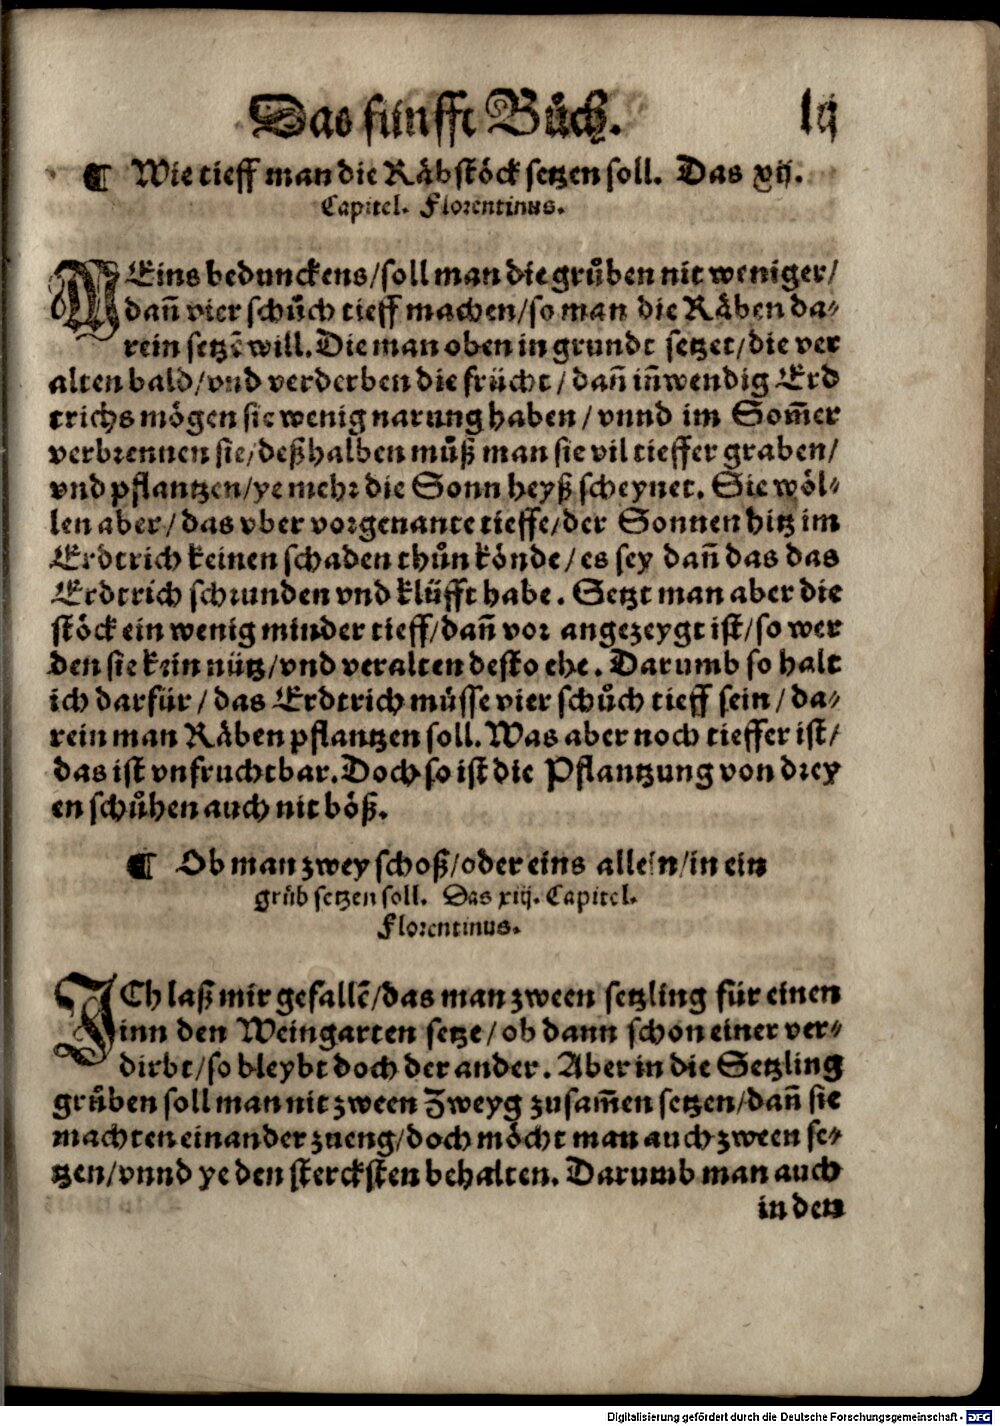 Das fünfft Bůch. lij
¶ Wie tieff man die Räbstöck setzen soll. Das xij.
Capitel. Florentinus.
MEins bedunckens/soll man die grůben nit weniger/
dañ vier schůch tieff machen/so man die Räben da-
rein setzē will. Die man oben in grundt setzet/die ver
alten bald/vnd verderben die frücht/dañ iñwendig Erd
trichs mögen sie wenig narung haben/vnnd im Som̄er
verbrennen sie/deßhalben můß man sie vil tieffer graben/
vnd pflantzen/ye mehr die Sonn heyß scheynet. Sie wöl-
len aber/das vber vorgenante tieffe/der Sonnen hitz im
Erdtrich keinen schaden thůn könde/es sey dañ das das
Erdtrich schrunden vnd klüfft habe. Setzt man aber die
stöck ein wenig minder tieff/dañ vor angezeygt ist/so wer
den sie kein nütz/vnd veralten desto ehe. Darumb so halt
ich darfür/das Erdtrich müsse vier schůch tieff sein/da-
rein man Räben pflantzen soll. Was aber noch tieffer ist/
das ist vnfruchtbar. Doch so ist die Pflantzung von drey
en schůhen auch nit böß.
¶ Ob man zwey schoß/oder eins allein/in ein
grůb setzen soll. Das xiij. Capitel.
Florentinus.
ICh laß mir gefallē/das man zween setzling für einen
inn den Weingarten setze/ob dann schon einer ver-
dirbt/so bleybt doch der ander. Aber in die Setzling
grůben soll man nit zween Zweyg zusam̄en setzen/dañ sie
machten einander zu eng/doch möcht man auch zween se-
tzen/vnnd ye den stercksten behalten. Darumb man auch
in den
Digitalisierung gefördert durch die Deutsche Forschungsgemeinschaft - DFG